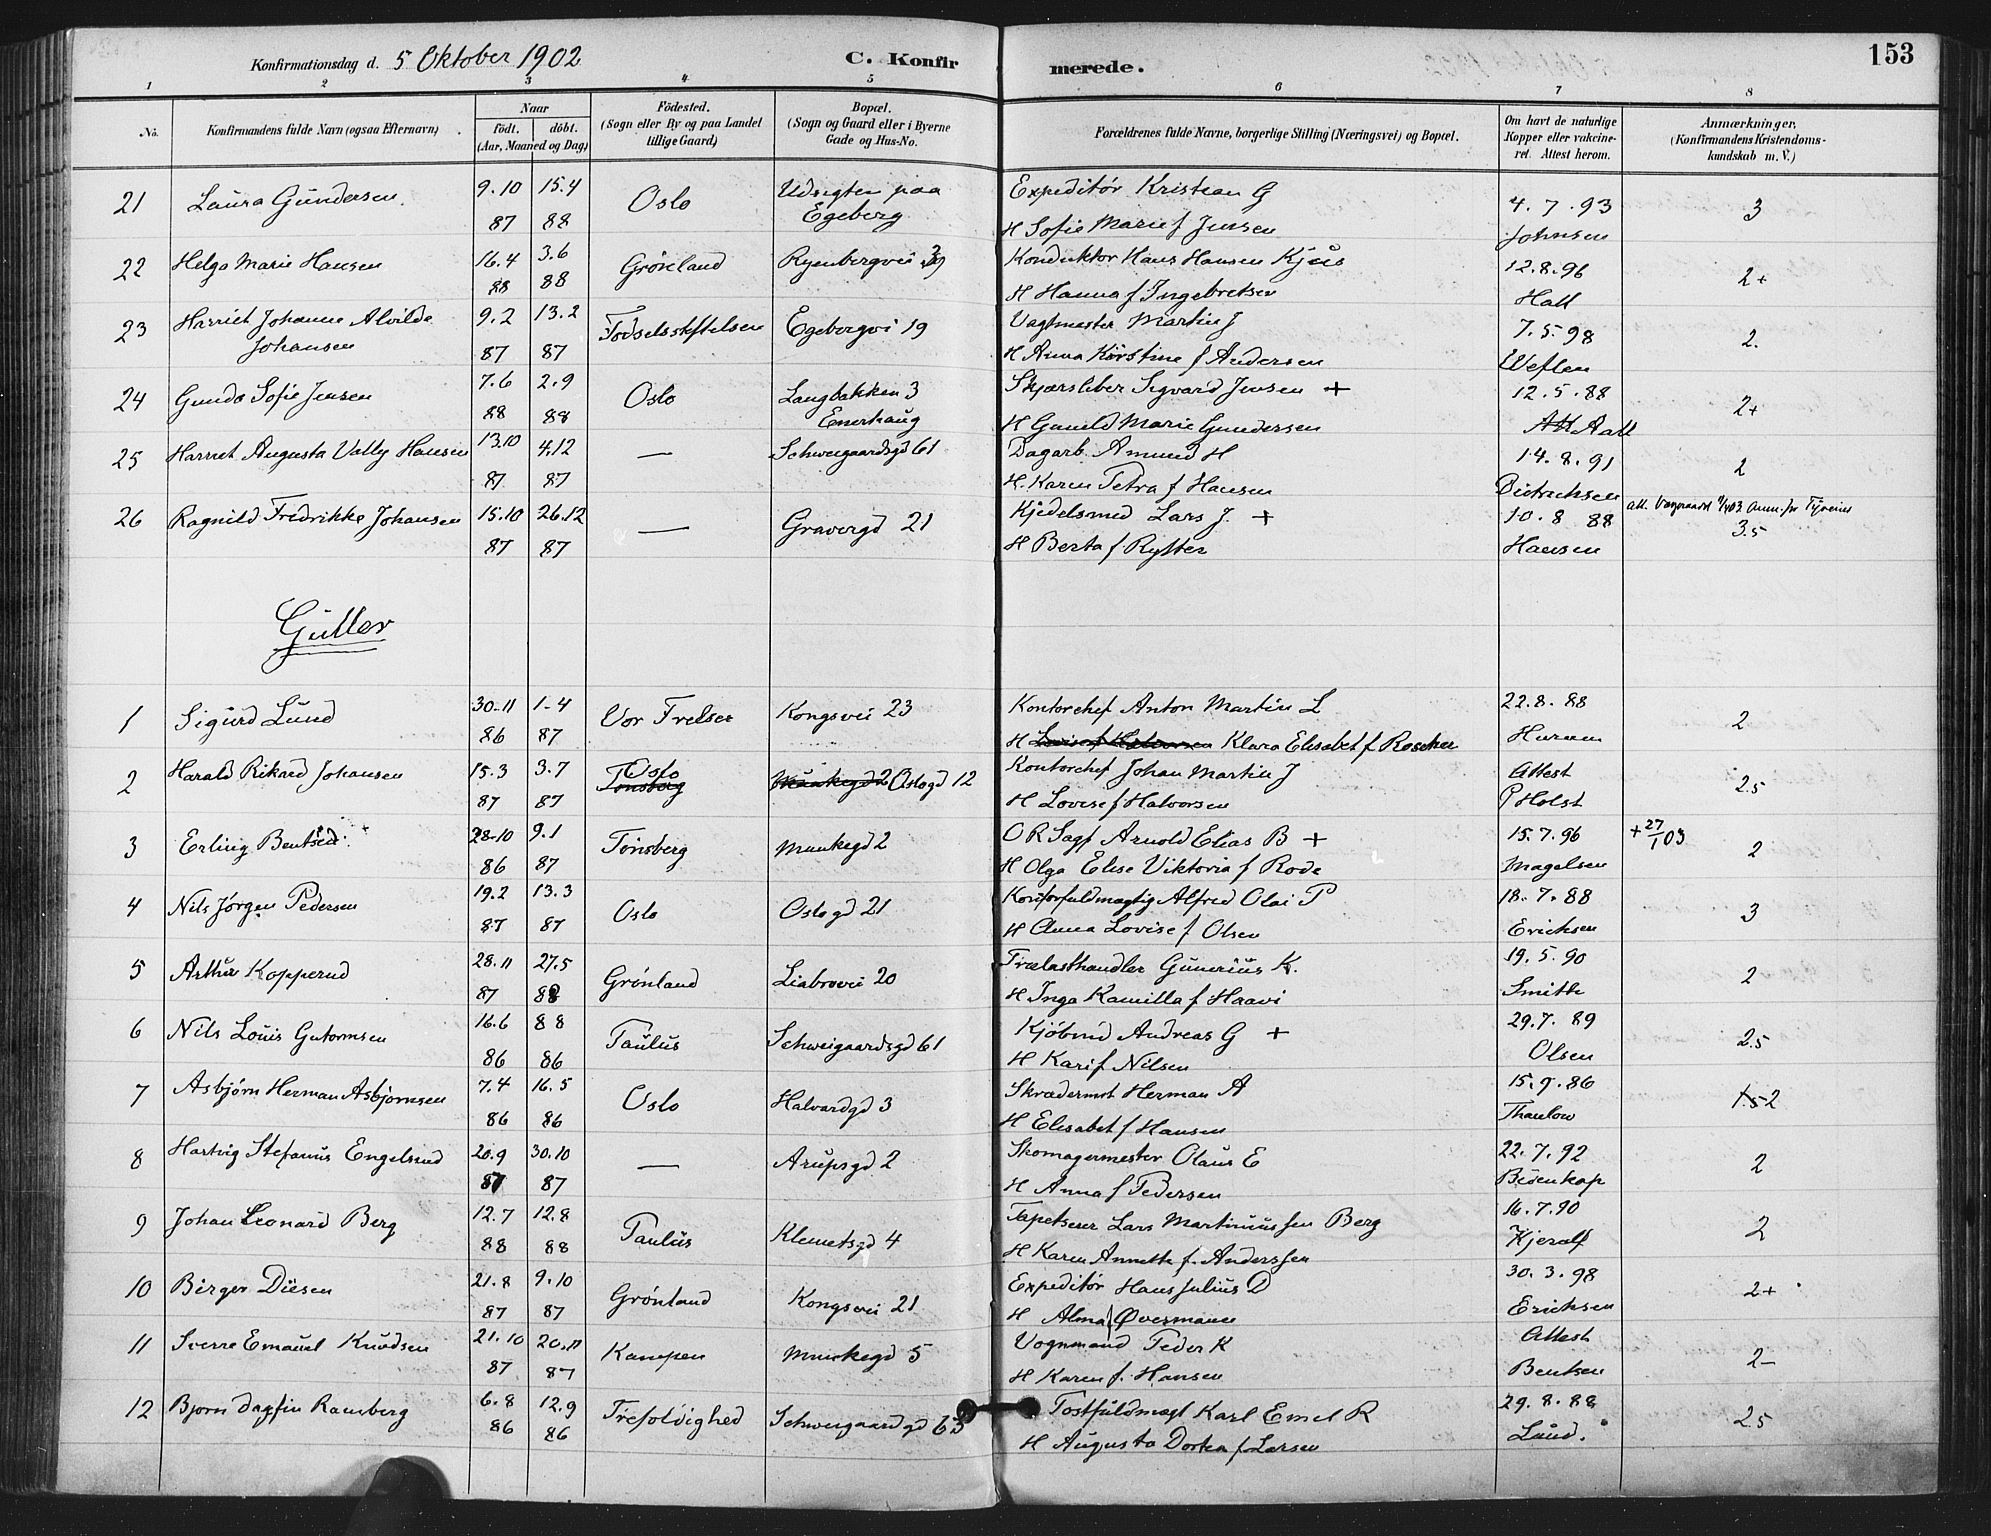 Konfirmationsdag d. 5 Oktober 1902 C. Konfirmerede. 153
1 2 3 4 5 6 7 8
No. Konfirmandens fulde Navn (ogsaa Efternavn) Naar födt. döbt. (Aar, Maaned og Dag) Födested. (Sogn eller By og paa Landet tillige Gaard) Bopæl. (Sogn og Gaard eller i Byerne Gade og Hus-No. Forældrenes fulde Navne, borgerlige Stilling (Næringsvei) og Bopæl. Om havt de naturlige Kopper eller vakcineret. Attest herom. Anmærkninger, (Konfirmandens Kristendomskundskab m. V.)
21 Laura Gundersen 9.10 15.4 Oslo Udsigten paa Expeditør Kristian G 4.7.93 3
87 88 Egeberg H Sofie Marie f Jensen Johnsen
22 Helga Marie Hansen 16.4 3.6 Grönland Ryenbergvei Konduktor Hans Hansen Kjús 12.8.96 2+
88 88 H Hanna f Ingebretsen Hall
23 Harriet Johanne Alvilde 9.2 13.2 Fødselsstiftelsen Egebergvei 19 Vagtmester Martin J 7.5.98 2.
Johansen 87 87 H Anna Kirstine f Andersen Weflen
24 Gunda Sofie Jensen 7.6 2.9 Oslo Langbakken 3 Skjærsliber Sigvard Jensen + 12.5.88 2+
88 88 Enerhaug H Gunild Marie Gundersen Aall
25 Harriet Augusta Vally Hansen 13.10 4.12 — Schweigaardsgd 61 Dagarb. Amund H 14.8.91 2
87 87 H. Karen Petra f Hansen Didrichsen
26 Ragnild Fredrikke Johansen 15.10 26.12 — Gravergd 21 Kjedelsmed Lars J. + 10.8 88 3.5
87 87 H Berta f. Rytter Hansen
Gutter
1 Sigurd Lund 30.11 1.4 Vor Frelser Kongsvei 23 Kontorchef Anton Martin L 22.8.88 2
86 87 H Klara Elisabet f Roscher
2 Harald Rikard Johansen 15.3 3.7 Oslo Oslogd 12 Kontorchef Johan Martin J Attest 2.5
87 87 Tønsberg H Lovise f Halvorsen P Holst
3 Erling Bentsen 28.10 9.1 Tönsberg Munkegd 2 O R Sagf Arnold Elias B + 15.7.96 + 27/1 03 2
86 87 H Olga Elise Viktoria f Rode Magelsen
4 Nils Jørgen Pedersen 19.2 13.3 Oslo Oslogd 21 Kontorfuldmægtig Alfred Olai P 18.7.88 3
87 87 H Anna Lovise f Olsen Erichsen
5 Arthur Kopperud 28.11 27.5 Grönland Liabrovei 20 Trælasthandler Gunerius K. 19.5.90 2
87 88 H Inga Kamilla f Haavi Smith
6 Nils Louis Gutormsen 16.6 8 8 Paulus Schweigaardsgd 61 Kjöbmd Andreas G + 29.7.89 2.5
86 86 H Kari f Nilsen Olsen
7 Asbjørn Herman Asbjørnsen 7.4 16.5 Oslo Halvardgd 3 Skrædermst Herman A 15.9.86 1.5 2
86 86 H Elisabet f Hansen Thaulow
8 Hartvig Stefanus Engelsrud 20.9 30.10 — Arupsgd 2 Skomagermester Olaus E 22.7.92 2
87 87 H Anna f Pedersen Bidenkap
9 Johan Leonard Berg 12.7 12.8 Paulus Klemetsgd 4 Tapetserer Lars Martinussen Berg 16.7.90 2
88 88 H Karen Annette f. Anderssen Kjerulf
10 Birger Diesen 21.8 9.10 Grönland Kongsvei 21 Expeditør Hans Julius D 30.3.98 2+
87 87 H Alma f Øvermann Erichsen
11 Sverre Emanuel Knudsen 21.10 20.11 Kampen Munkegd 5 Vognmand Peder K Attest 2–
87 87 H Karen f. Hansen Bentsen
12 Bjørn Dagfin Ramberg 6.8 12.9 Trefoldighed Schweigaardgd 63 Postfuldmægt Karl Emil R 29.8.88 2.5
86 86 H Augusta Dortea f. Larsen Lund.